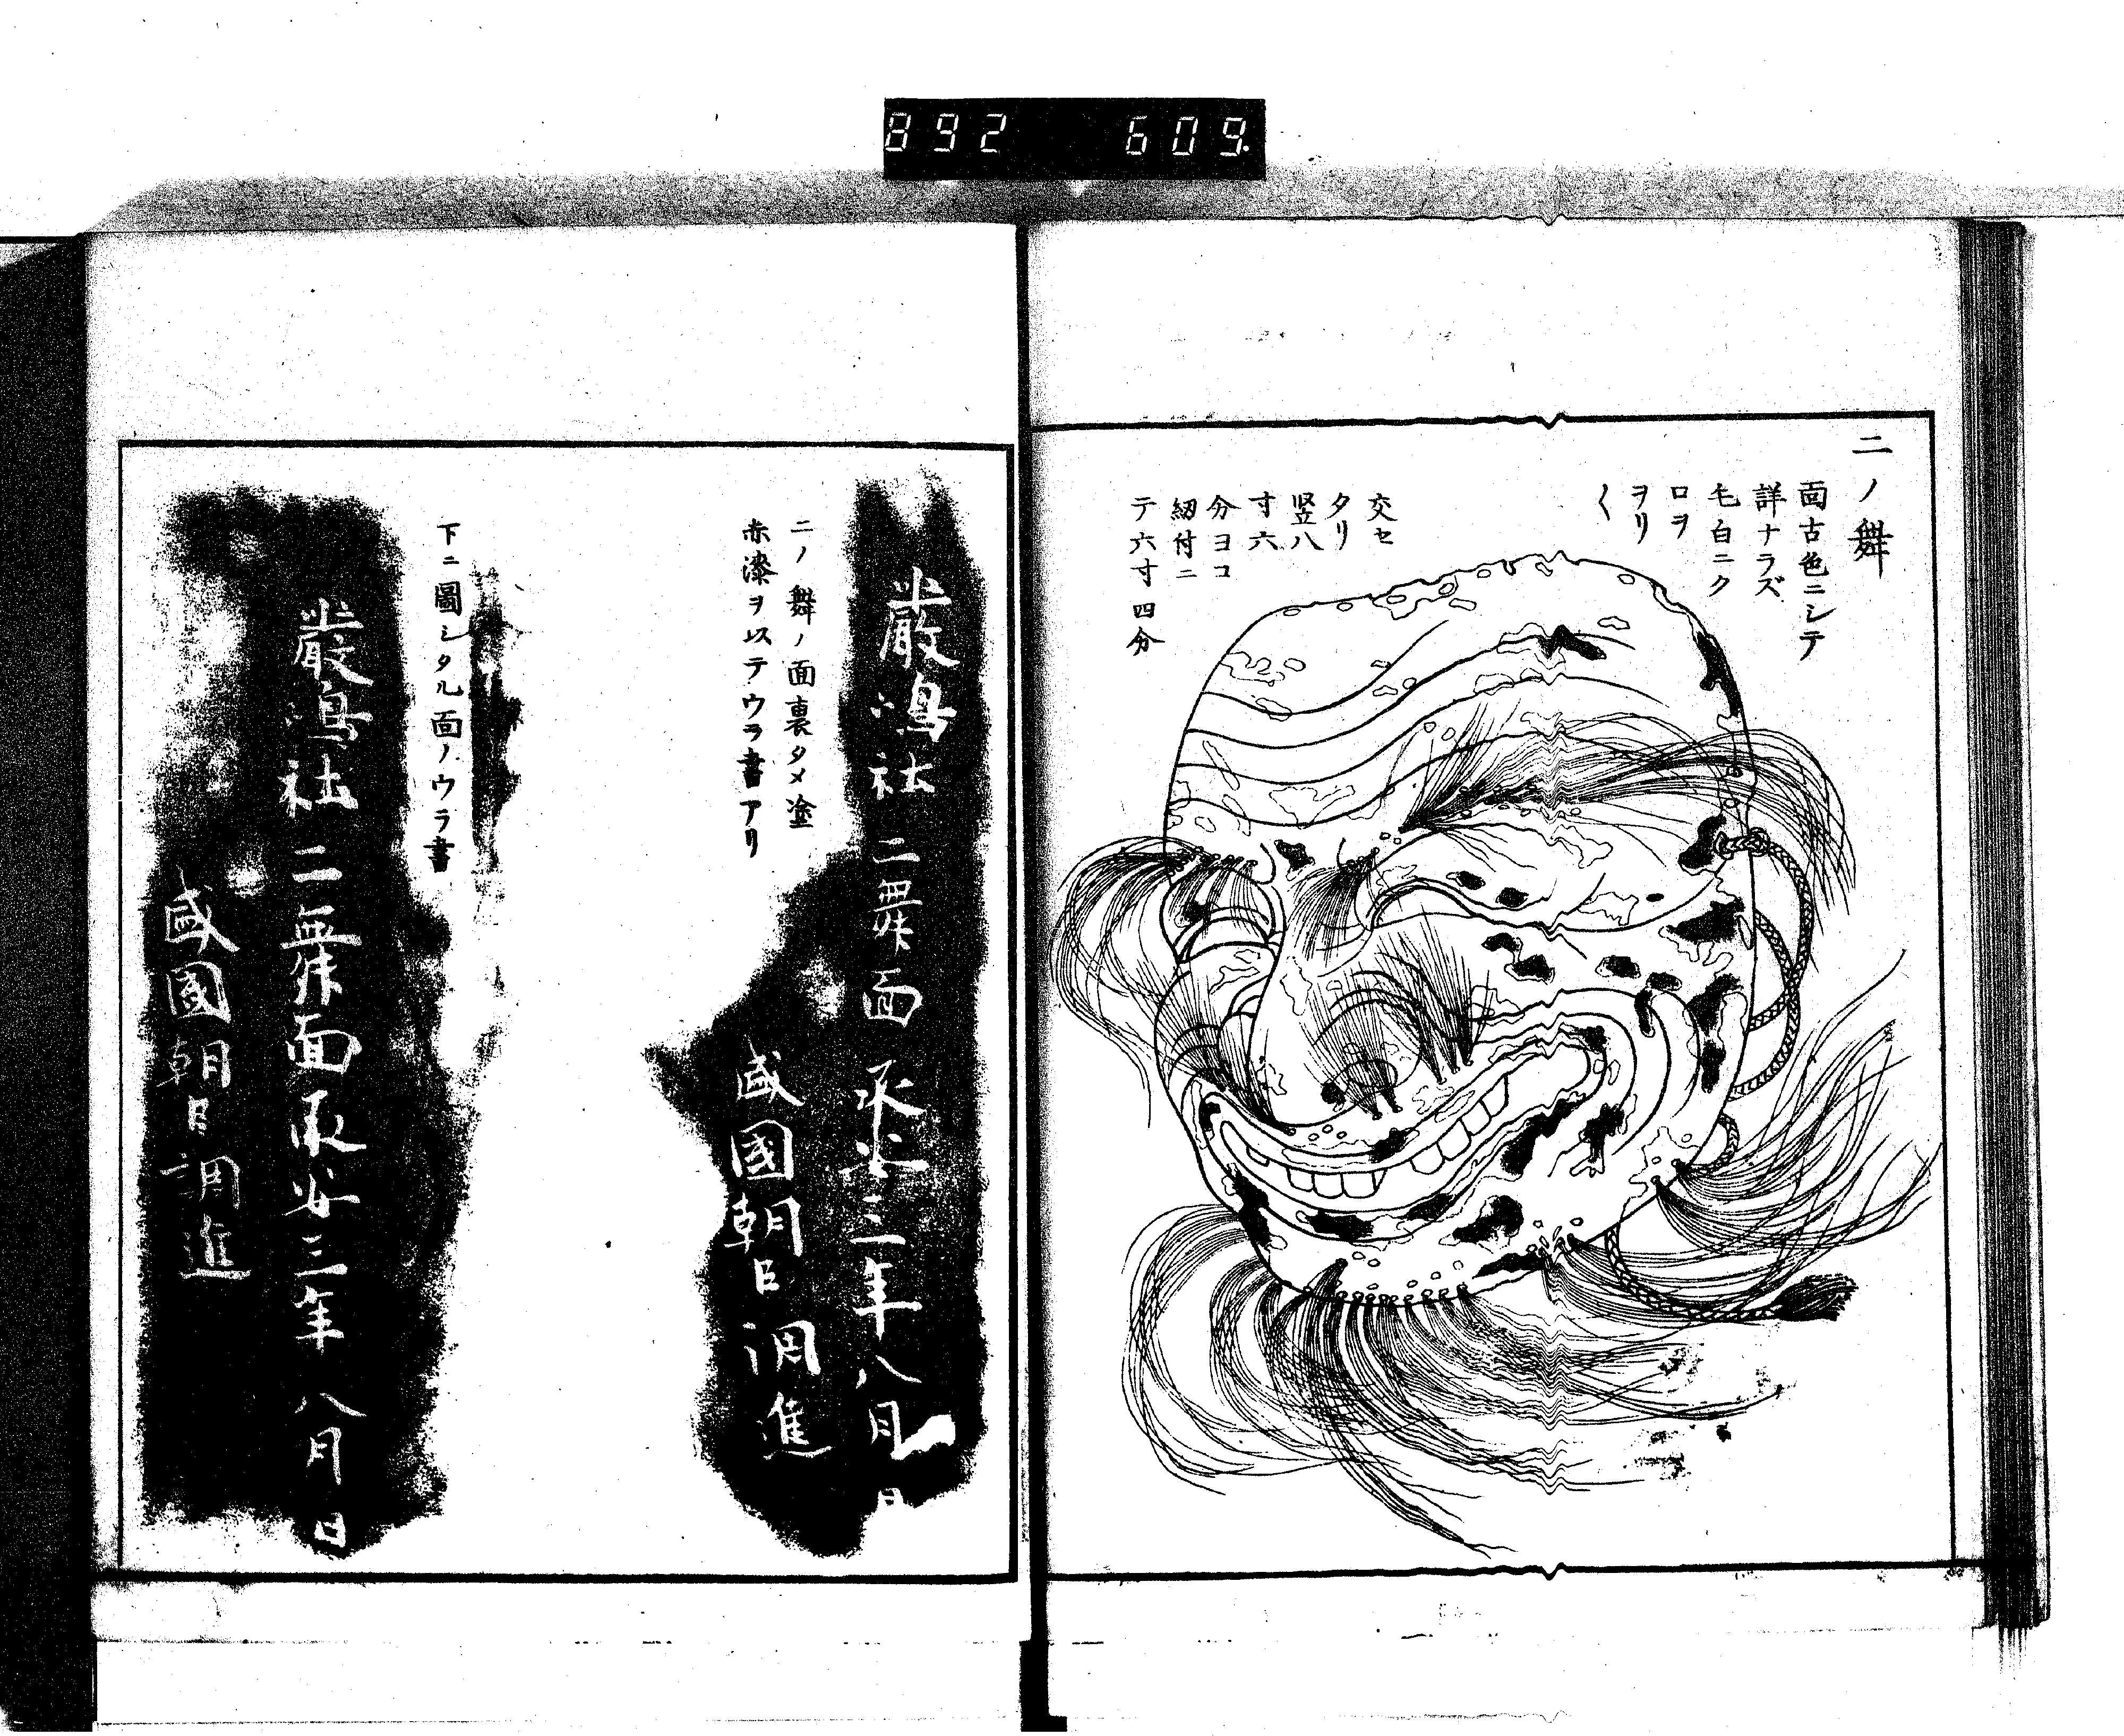 892 609.
二ノ舞
面古色ニシテ
詳ナラズ
毛白ニク
ロヲ
ヲリ
〱
交セ
タリ
竪八
寸六
分ヨコ
紐付ニ
テ六寸四分
嚴嶋社二舞面承安三年八月日
盛國朝臣調進
二ノ舞ノ面裏タメ塗
赤漆ヲ以テウラ書アリ
下ニ圖シタル面ノウラ書
嚴嶋社二舞面承安三年八月日
盛國朝臣調進